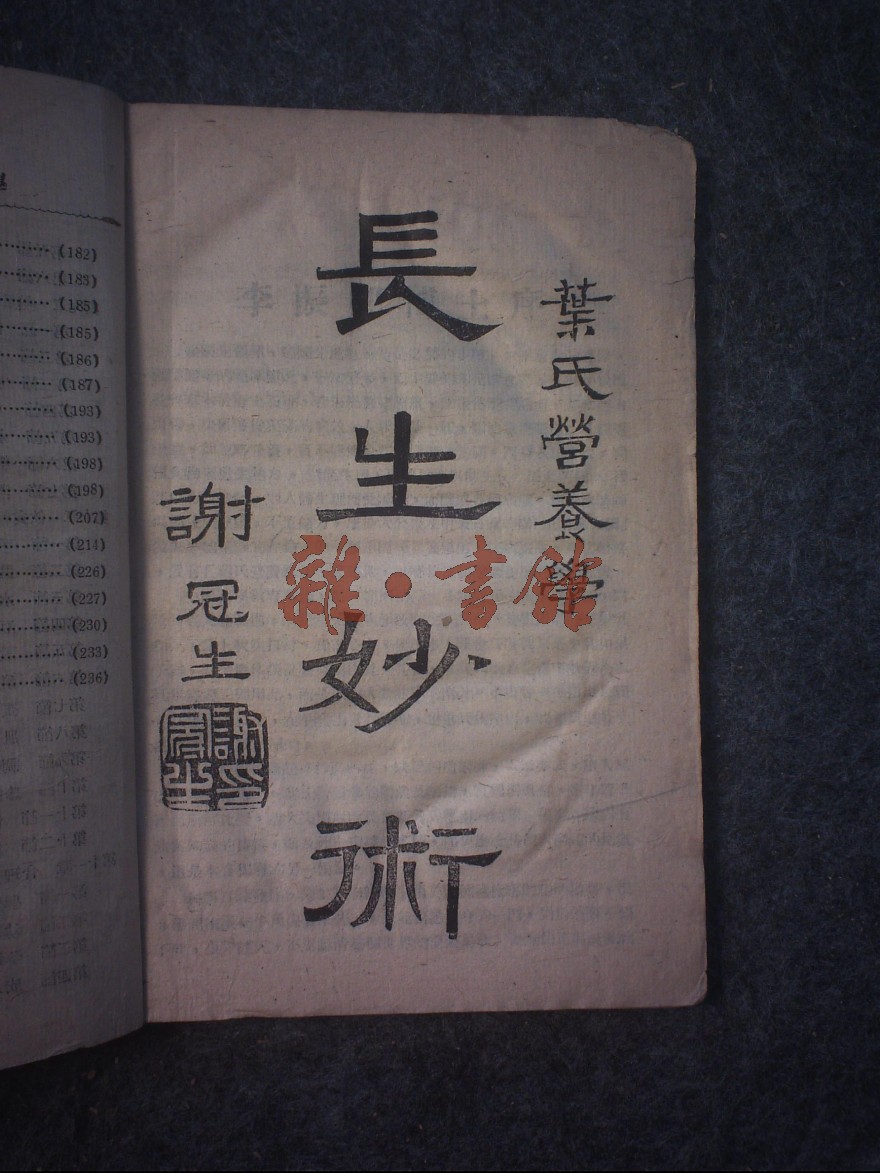 葉氏營養學
長生妙術
謝冠生
謝冠生印
雜·書館
(182)
(183)
(185)
(185)
(186)
(187)
(193)
(193)
(198)
(198)
(207)
(214)
(226)
(227)
(230)
(233)
(236)